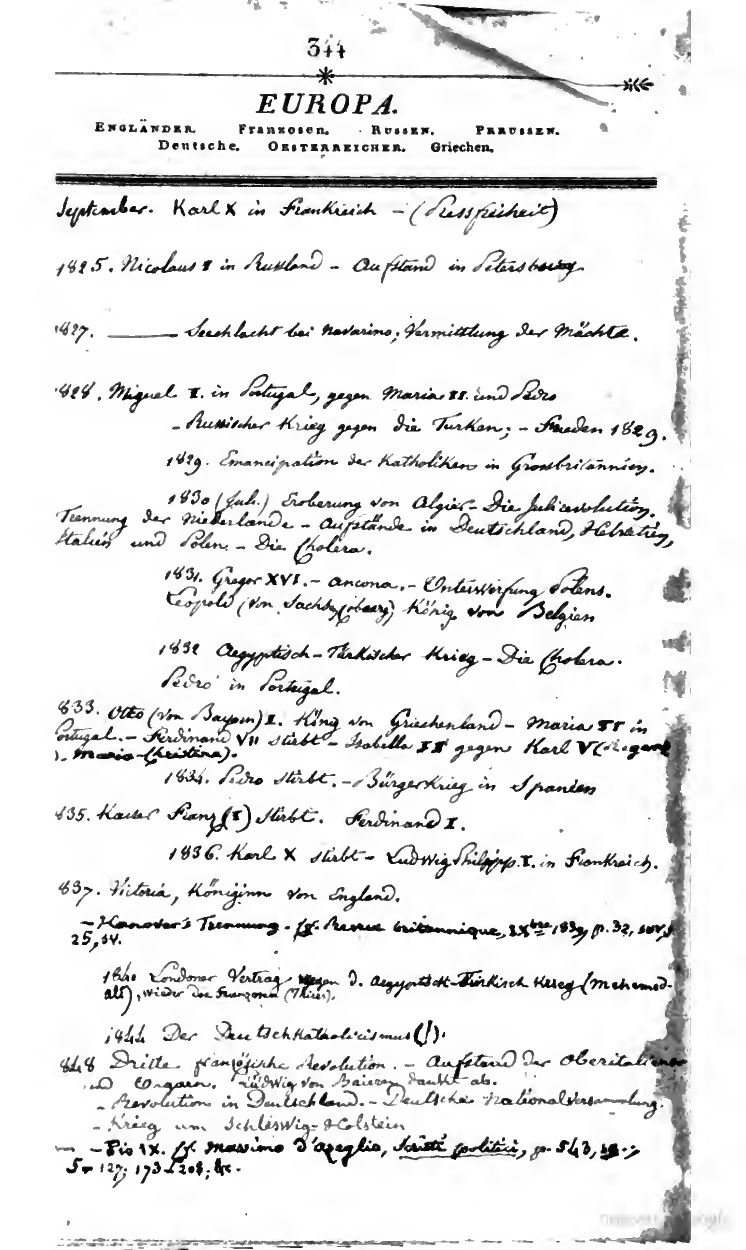 344
EUROPA.
ENGLÄNDER. Franzosen. RUSSEN. PREUSSEN.
Deutsche. OESTERREICHER. Griechen.
September. Karl X in Frankreich – (Pressfreiheit)
1825. Nicolaus I in Russland – Aufstand in Petersburg
1827. ——— Seeschlacht bei Navarino; Vermittlung der Mächte.
1828. Miguel I. in Portugal, gegen Maria II. und Pedro
– Russischer Krieg gegen die Türken; – Frieden 1829.
1829. Emancipation der Katholiken in Grossbritannien.
1830 (Jul.) Eroberung von Algier – Die Julirevolution.
Trennung der Niederlande – Aufstände in Deutschland, Helvetien,
Italien und Polen. – Die Cholera.
1831. Gregor XVI. – Ancona. – Unterwerfung Polens.
Leopold (von Sachs. Coburg) König von Belgien
1832 Aegyptisch-Türkischer Krieg – Die Cholera.
Pedro in Portugal.
833. Otto (von Bayern) I. König von Griechenland – Maria II in
Portugal. – Ferdinand VII stirbt – Isabella II gegen Karl V (
). Maria-Christina).
1834. Pedro stirbt. – Bürgerkrieg in Spanien
835. Kaiser Franz (I) stirbt. Ferdinand I.
1836. Karl X stirbt – Ludwig Philipp. I. in Frankreich.
837. Victoria, Königinn von England.
– Hanover's Trennung. Cf. Revue britannique, p. 32,
25, 54.
1840 Londoner Vertrag wegen d. Aegyptisch-Türkisch Krieg (Mehemed-
ali), wieder die Franzosen (Thiers).
1844 Der Deutschkatholicismus (!).
848 Dritte französische Revolution. – Aufstand der Oberitaliener
Ungarn. Ludwig von Baiern dankt ab.
– Revolution in Deutschland. – Deutsche Nationalversammlung.
– Krieg um Schleswig-Holstein
– Pio IX. Cf. Massimo d'Azeglio, Scritti politici, p. 543,
127; 173 208; &c.